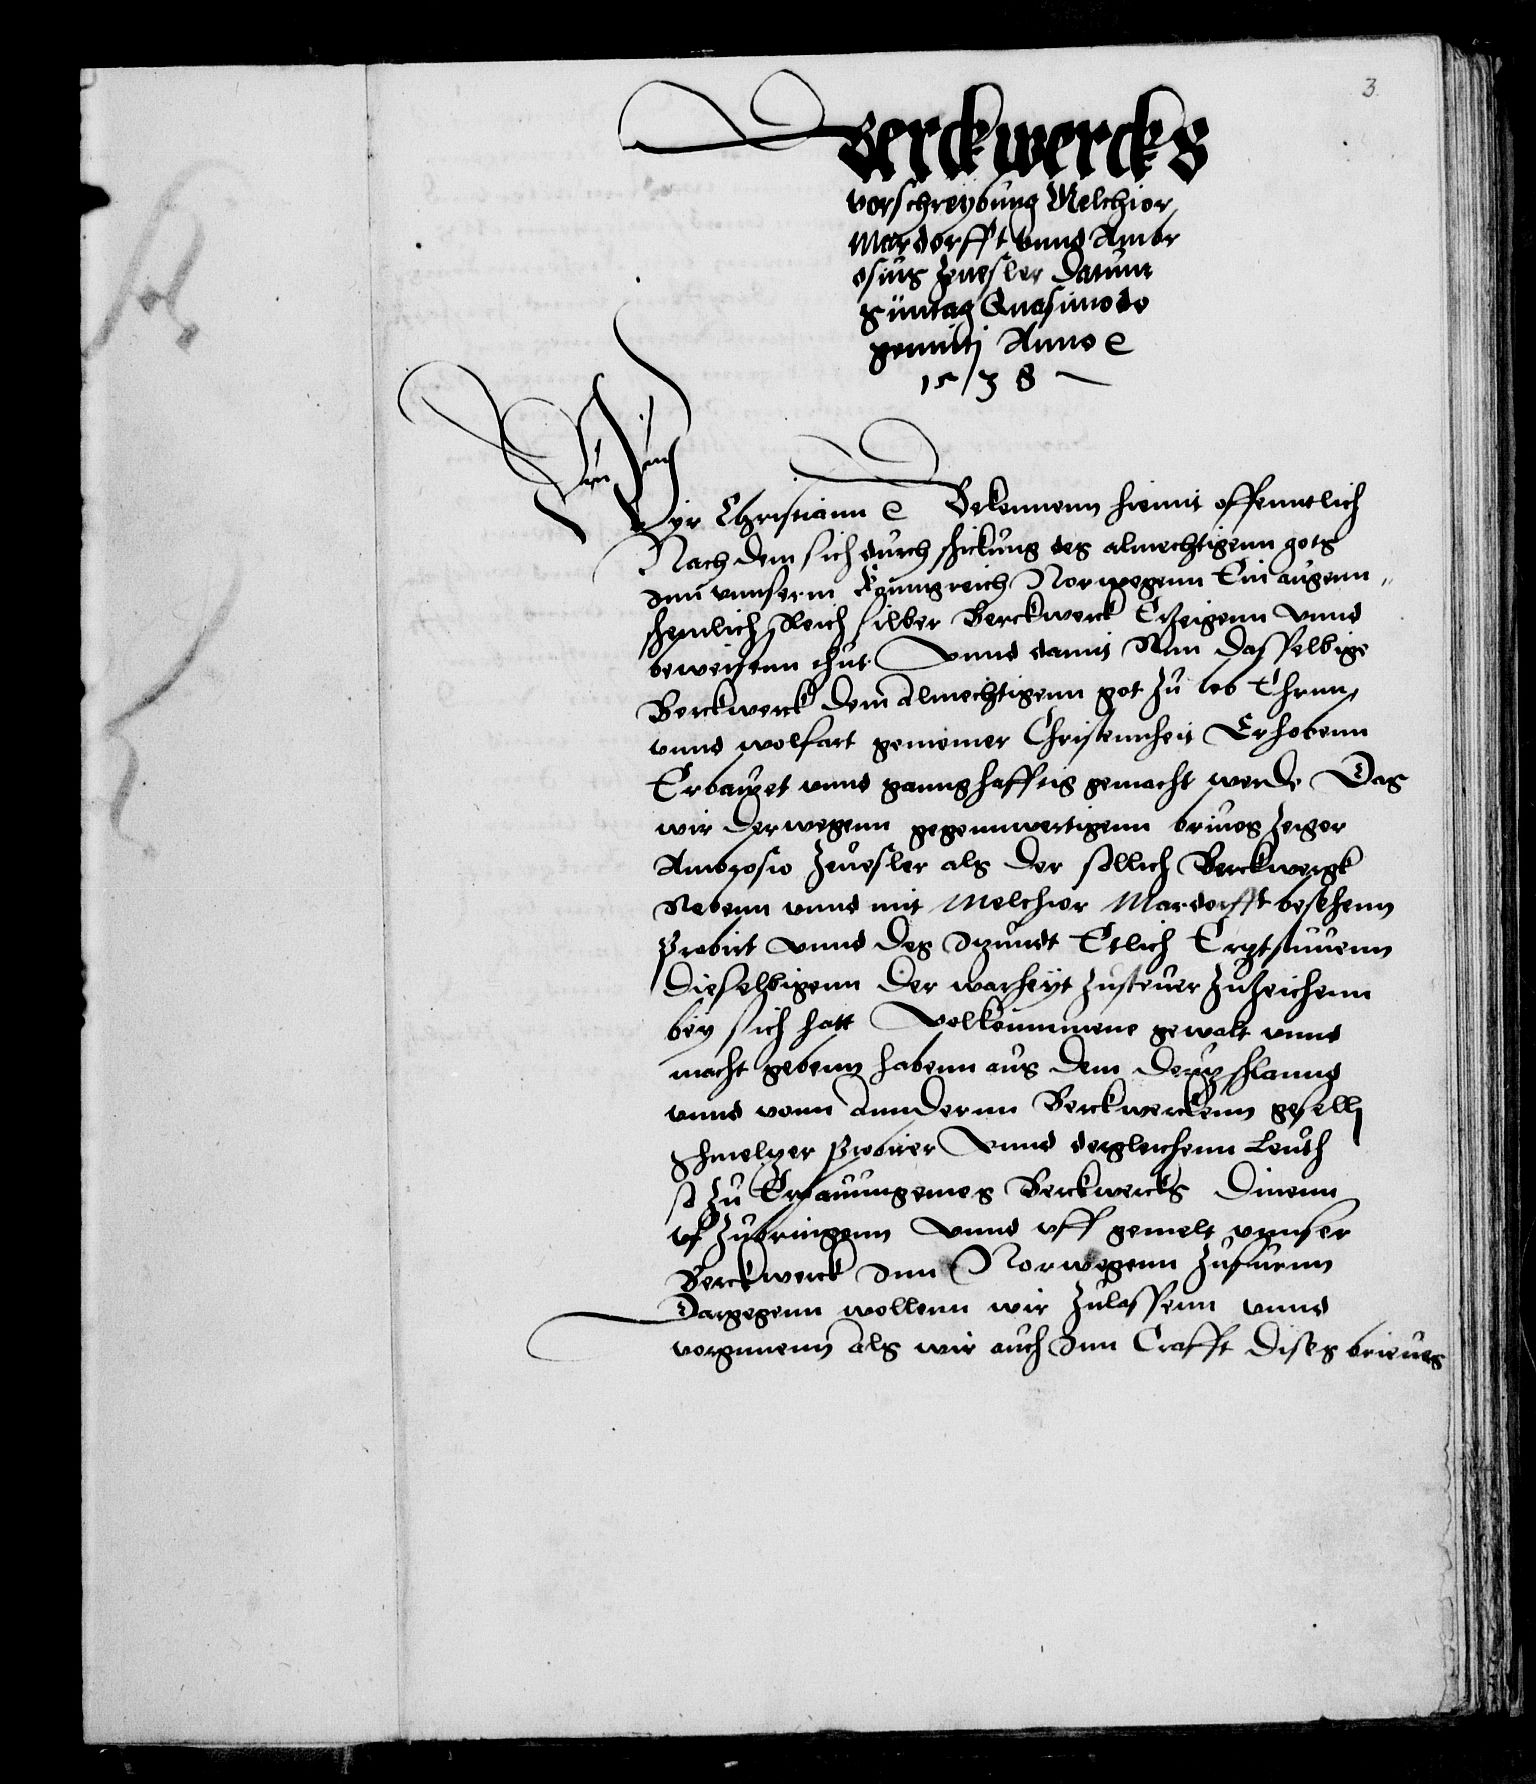 3.
Berckwercks
vorschreybung Melchior
Mardorfft vnnd Ambr
osius Zeuesler Datum
Suntag Quasimodo
geniti Anno e
1538
Wyr Christiann e Bekennenn hiemit offenntlich
Nach dem sich durch schickung des almechtigenn gots
Inn vnnserm Kyunngreich Norwegenn Ein augenn„
scheinlich Reich silber Berckwerck Ertzeigenn vnnd
beweisenn thut Vnnd damit Nun dasselbige
Berckwerck dem Almechtigenn got zu lob Ehrnn
vnnd wolfart gemeiner Christennheit Erhobenn
Erbawet vnnd ganng hafftig gemacht werde Das
wir derwegenn gegennwertigenn brieues zeiger
Ambrosio Zeuesler als der sollich Berckwergk
Nebenn vnnd mit Melchior Mardorfft besehenn
Probirt Vnnd des Etlich Ertzstuuenn
dieselbigenn der warheyt zusteuer zu Zeichenn
bey sich hatt Volkommene gewalt vnnd
macht gebenn habenn aus dem Deutzschlannd
vnnd vonn Annderrnn Berckwerckenn gesell
Schmeltzer Probirer Vnnd dergleichenn Leuth
so zu Berckwercks dinenn
vf zubringenn Vnnd vff gemelt vnnser
Berckwerck Inn Norwegenn zufurnn
Dargegenn wollenn wir zulassenn vnnd
vorgunenn Als wir auch Inn Crafft dises brieues